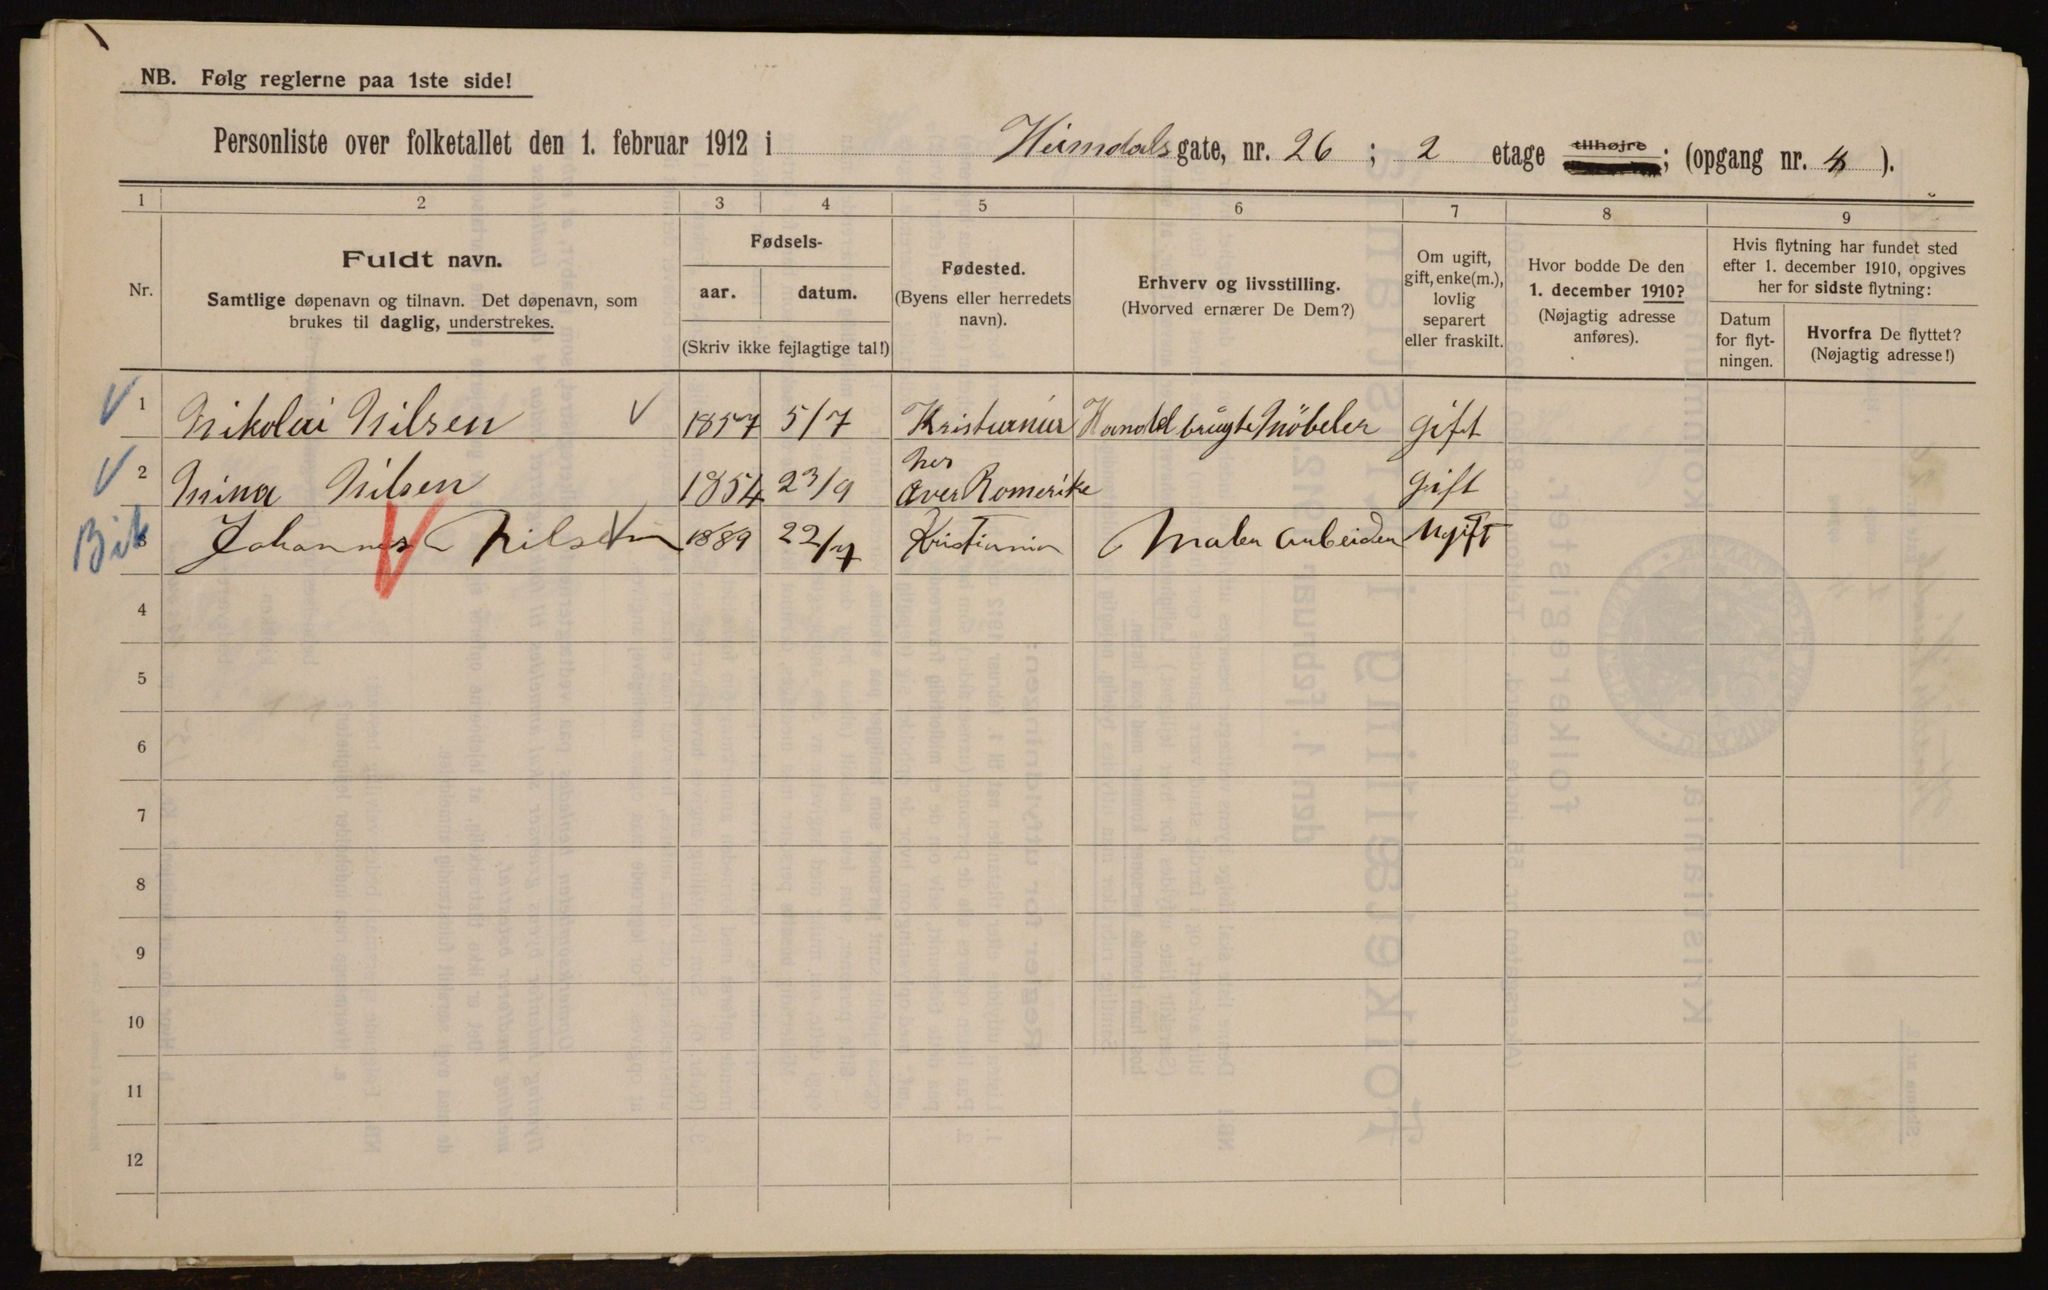 NB. Følg reglerne paa 1ste side!
Personliste over folketallet den 1. februar 1912 i Heimdals gate, nr. 26 ; 2 etage tilhøjre ; (opgang nr. 4 ).
1 2 3 4 5 6 7 8 9
Nr.
Fuldt navn.
Samtlige døpenavn og tilnavn. Det døpenavn, som
brukes til daglig, understrekes.
Fødsels-
aar. datum.
(Skriv ikke fejlagtige tal!)
Fødested.
(Byens eller herredets
navn).
Erhverv og livsstilling.
(Hvorved ernærer De Dem?)
Om ugift,
gift, enke(m.),
lovlig
separert
eller fraskilt.
Hvor bodde De den
1. december 1910?
(Nøjagtig adresse
anføres).
Hvis flytning har fundet sted
efter 1. december 1910, opgives
her for sidste flytning:
Datum
for flyt-
ningen.
Hvorfra De flyttet?
(Nøjagtig adresse!)
1 Nikolai Nilsen 1857 5/7 Kristiania Handel brugte Möbeler gift
2 Mina Nilsen 1854 23/9 Nes Øver Romerike gift
Bik 3 Johannes Nilsen 1889 22/7 Kristiania Maler Arbeider Ugift
4
5
6
7
8
9
10
11
12